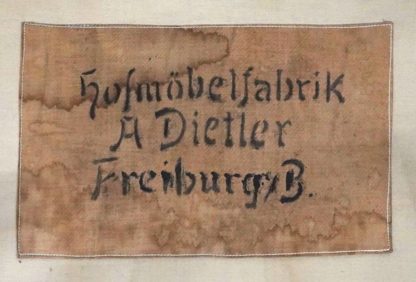 Hofmöbelfabrik
A Dietler
Freiburg/B.